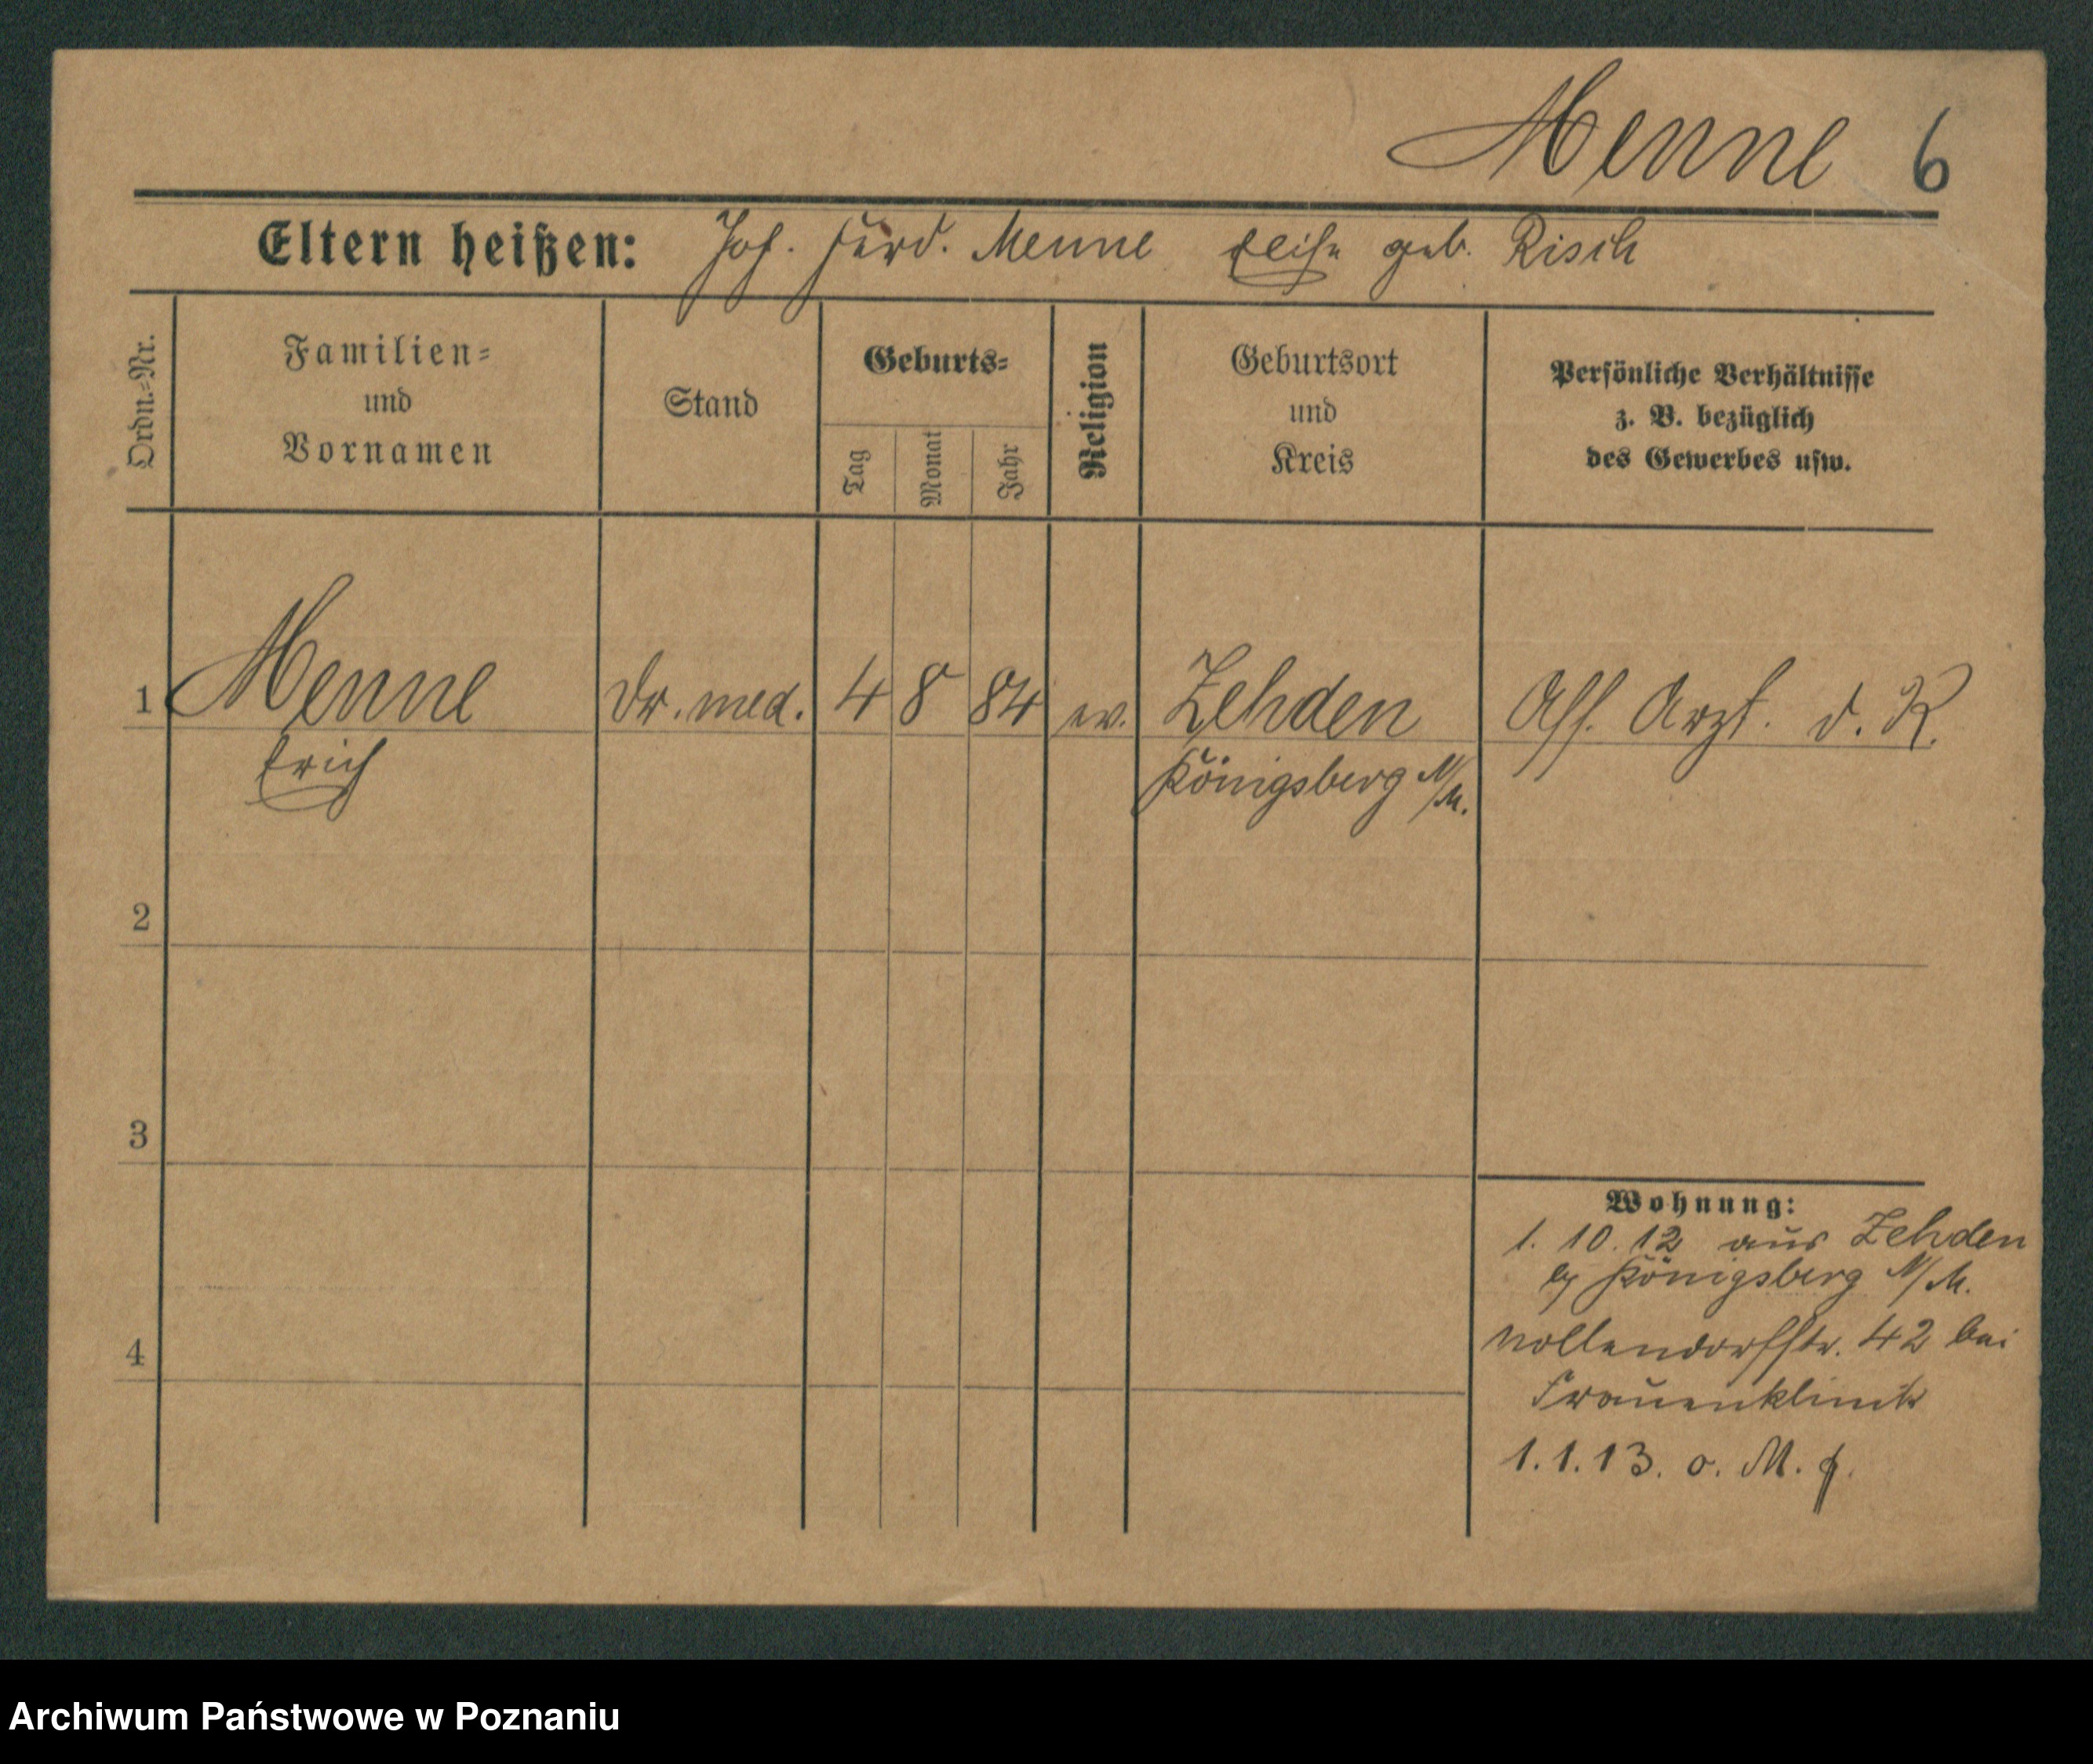 Menne 6
Eltern heißen: Joh. Ferd. Menne Elise geb. Risch
Ordn.-Nr.
Familien-
und
Vornamen
Stand
Geburts-
Tag
Monat
Jahr
Religion
Geburtsort
und
Kreis
Persönliche Verhältnisse
z. B. bezüglich
des Gewerbes usw.
1 Menne Dr. med. 4 8 84 ev. Zehden Ass. Arzt. d. R.
Erich Königsberg N/M.
2
3
4
Wohnung:
1. 10. 12 aus Zehden
Königsberg N/M.
Nollendorfstr. 42 bei
Frauenklinik
1. 1. 13. o. M.
Archiwum Państwowe w Poznaniu